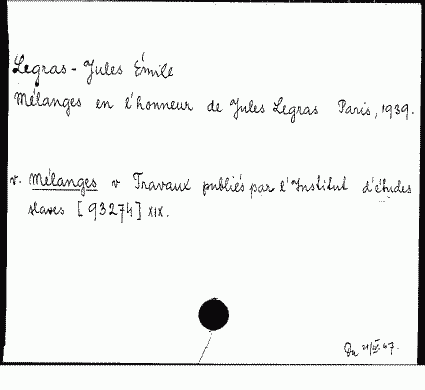 Legras - Jules Émile
Mélanges en l'honneur de Jules Legras Paris, 1939.
v. Mélanges v Travaux publiés par l'Institut d'études
slaves [93274] XIX.